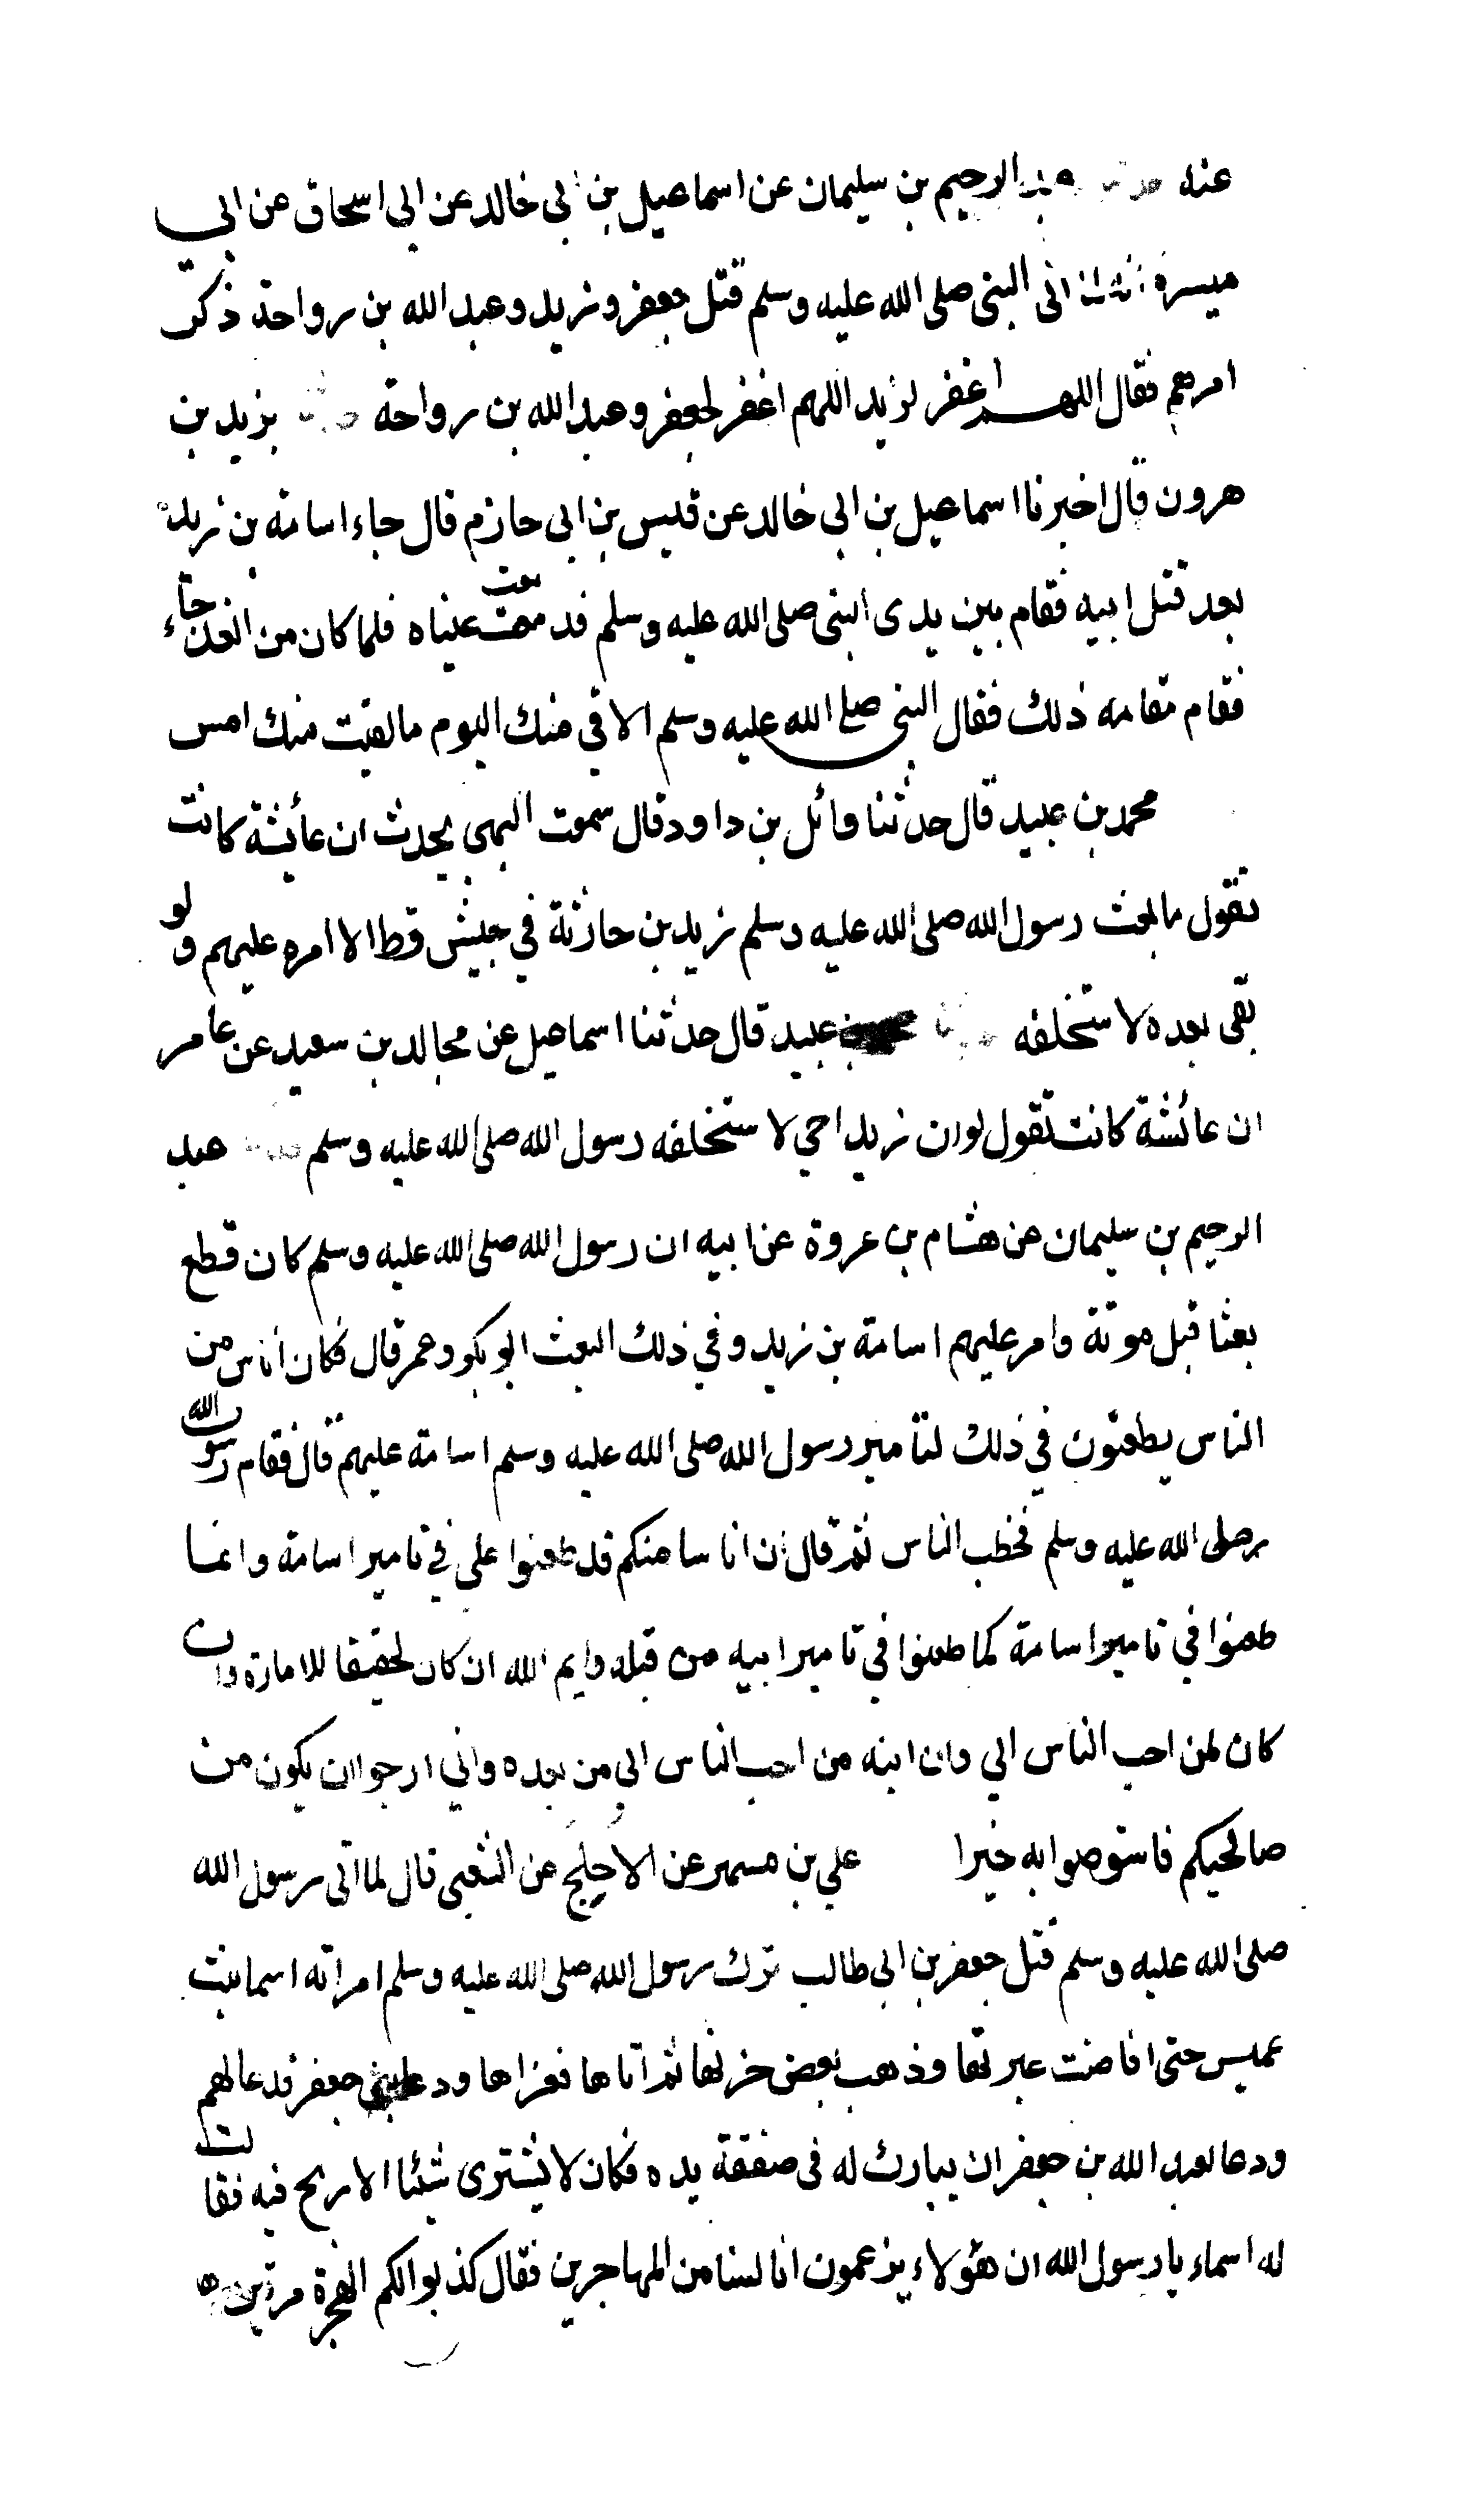 عنه عبد الرحيم بن سليمان عن اسماعيل بن ابي خالد عن ابي اسحاق عن ابي
ميسرة اتى النبي صلى الله عليه وسلم قتل جعفر وزيد وعبد الله بن رواحة ذكر
امرهم فقال اللهم اغفر لزيد اللهم اغفر لجعفر وعبد الله بن رواحة يزيد بن
هرون قال اخبرنا اسماعيل بن ابي خالد عن قيس بن ابي حازم قال جاء اسامة بن زيد
بعد قتل ابيه فقام بين يدى النبى صلى الله عليه وسلم فدمعت عيناه فلما كان من الغد جاء
فقام مقامه ذلك فقال النبى صلى الله عليه وسلم الاقي منك اليوم ما لقيت منك امس
محمد بن عبيد قال حدثنا وائل بن داود قال سمعت البهى يحدث ان عائشة كانت
تقول ما بعث رسول الله صلى الله عليه وسلم زيد بن حارثة في جيش قط الا امره عليهم ولو
بقى بعده لاستخلفه بن عبيد قال حدثنا اسماعيل عن مجالد بن سعيد عن عامر
ان عائشة كانت تقول لو ان زيدا حي لاستخلفه رسول الله صلى الله عليه وسلم عبد
الرحيم بن سليمان عن هشام بن عروة عن ابيه ان رسول الله صلى الله عليه وسلم كان قطع
بعثا قبل موتة وامر عليهم اسامة بن زيد وفي ذلك البعث ابو بكر وعمر قال فكان اناس من
الناس يطعنون في ذلك لتامير رسول الله صلى الله عليه وسلم اسامة عليهم قال فقام رسول الله
صلى الله عليه وسلم فخطب الناس ثم قال ان اناسا منكم قد طعنوا علي في تامير اسامة وانما
طعنوا في تامير اسامة كما طعنوا في تامير ابيه من قبله وايم الله ان كان لحقيقا للامارة وان
كان لمن احب الناس الي وان ابنه من احب الناس الى من بعده واني ارجوا ان يكون من
صالحيكم فاستوصوا به خيرا علي بن مسهر عن الاجلح عن الشعبى قال لما اتى رسول الله
صلى الله عليه وسلم قتل جعفر بن ابى طالب ترك رسول الله صلى الله عليه وسلم امراته اسما بنت
عميس حتى افاضت عبرتها وذهب بعض حزنها ثم اتاها فعزاها ودعا بنى جعفر فدعا لهم
ودعا لعبد الله بن جعفر ان يبارك له فى صفقة يده فكان لا يشترى شيئا الا ربح فيه فقالت
له اسماء يا رسول الله ان هؤلاء يزعمون انا لسنا من المهاجرين فقال كذبوا لكم الهجرة مرتين